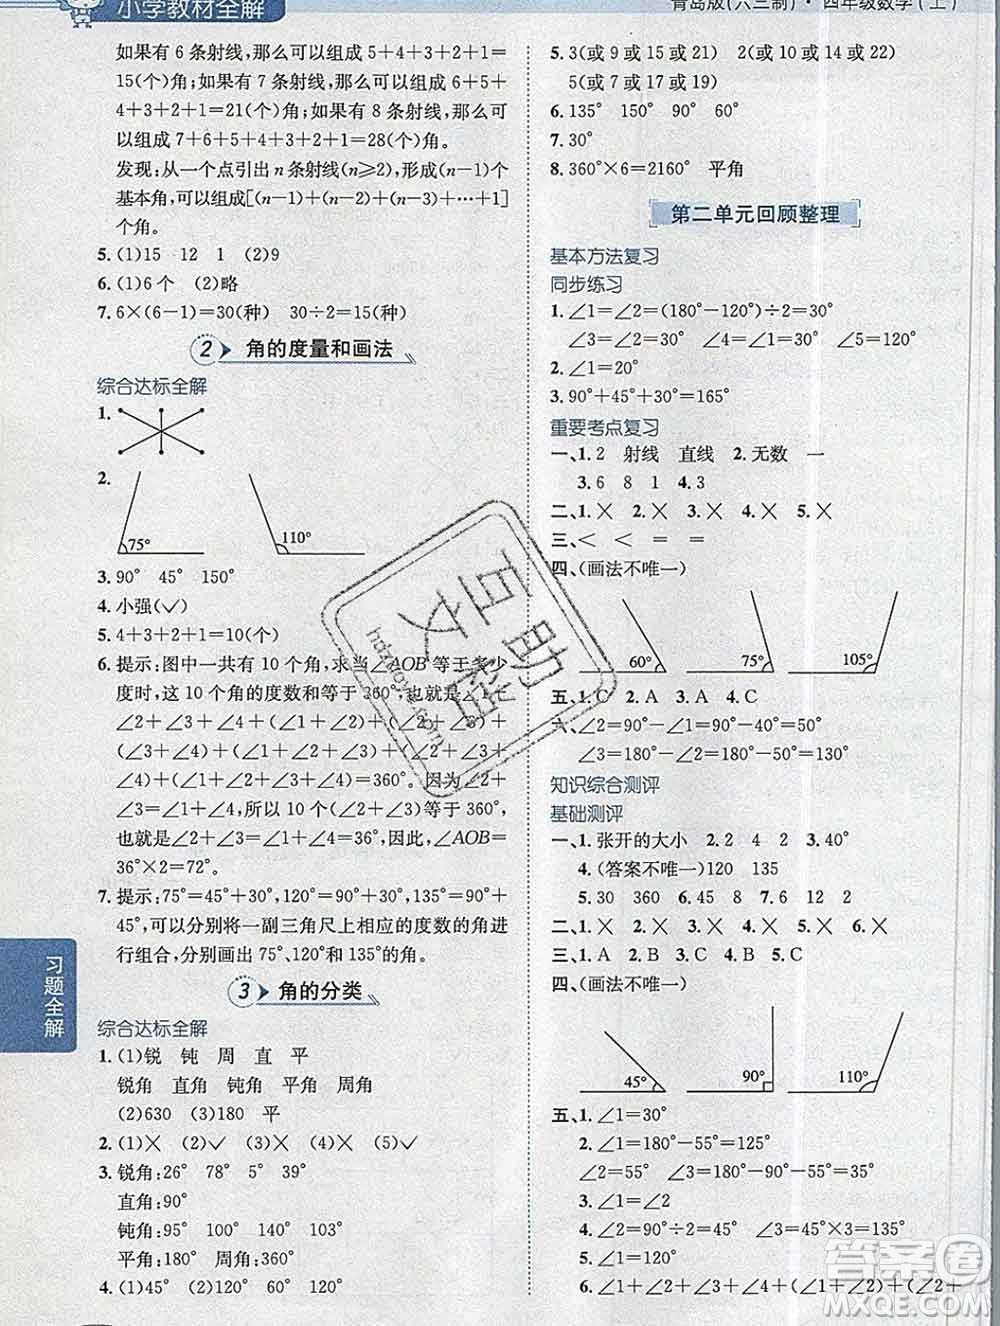 小学教材全解
青岛版(六三制)·四年级数学(上)
如果有6条射线,那么可以组成5+4+3+2+1=
15(个)角;如果有7条射线,那么可以组成6+5+
4+3+2+1=21(个)角;如果有8条射线,那么可
以组成7+6+5+4+3+2+1=28(个)角。
发现:从一个点引出n条射线(n≥2),形成(n-1)个
基本角,可以组成[(n-1)+(n-2)+(n-3)+…+1]
个角。
5. (1)15 12 1 (2)9
6. (1)6个 (2)略
7. 6×(6-1)=30(种) 30÷2=15(种)
2 角的度量和画法
综合达标全解
1.
2.
75° 110°
3. 90° 45° 150°
4. 小强(✓)
5. 4+3+2+1=10(个)
6. 提示:图中一共有10个角,求当∠AOB等于多少
度时,这10个角的度数和等于360°,也就是∠1+
∠2+∠3+∠4+(∠1+∠2)+(∠2+∠3)+
(∠3+∠4)+(∠1+∠2+∠3)+(∠2+∠3+
∠4)+(∠1+∠2+∠3+∠4)=360°。因为∠2+
∠3=∠1+∠4,所以10×(∠2+∠3)=360°,
∠2+∠3=36°,∠1+∠4=36°。此时,∠AOB=
36°×2=72°。
7. 提示:75°=45°+30°,120°=90°+30°,135°=90°+
45°,可以分别将一副三角尺上相应的度数的角进
行组合,分别画出75°、120°和135°的角。
3 角的分类
综合达标全解
1. (1)锐 钝 周 直 平
锐角 直角 钝角 平角 周角
(2)630 (3)180 平
2. (1)✕ (2)✓ (3)✕ (4)✕ (5)✓
3. 锐角:26° 78° 5° 35°
直角:90°
钝角:95° 100° 140° 103°
平角:180° 周角:360°
4. (1)45° (2)120° 60° 120°
习题全解
5. 3(或9或15或21) 1(或11或13) 2(或10或14或22)
5(或7或17或19)
6. 135° 150° 90° 60°
7. 30°
8. 360°×6=2160° 平角
第二单元回顾整理
基本方法复习
同步练习
1. ∠1=∠2=(180°-120°)÷2=30°
∠3=∠5=90°-30°=60° ∠4=60° ∠5=120°
2. ∠1=20°
3. 90°+45°+30°=165°
重要考点复习
一、1. 2 射线 直线 2. 无数 一
3. 6 8 1 4. 3
二、1. ✕ 2. ✕ 3. ✕ 4. ✕ 5. ✕
三、< < = =
四、(画法不唯一)
60° 75° 105°
五、1. C 2. A 3. A 4. C
六、∠2=90°-∠1=90°-40°=50°
∠3=180°-∠2=180°-50°=130°
知识综合测评
基础测评
一、1. 张开的大小 2. 2 4 2 3. 40°
4. (答案不唯一)120 135
5. 30 360 6. 8 7. 6 12 8. 5
二、1. ✕ 2. ✕ 3. ✕ 4. ✕
三、1. A 2. B 3. C 4. B 5. B
四、(画法不唯一)
45° 90° 110°
五、1. ∠1=30°
2. ∠1=180°-55°=125°
∠2=55° ∠3=180°-90°-55°=35°
3. ∠1=∠2
4. ∠2=90°÷2=45° ∠3=45°×3=135°
5. ∠1=120°
6. ∠1+∠2+∠3+∠4+(∠1+∠2)+(∠2+
互助文档
答案圈
MXQE.COM